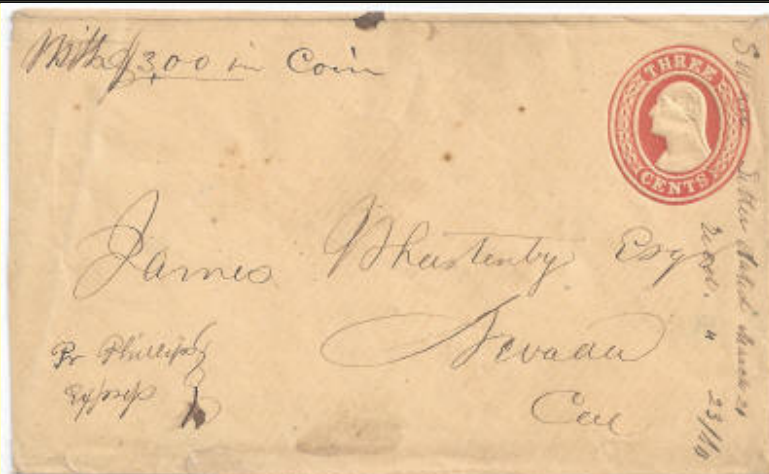 With $3.00 in Coin
THREE
CENTS
James Whartenby Esq
Nevada
Cal
Pr Phillips
Express
letter dated March 21
Recd. " 23/60